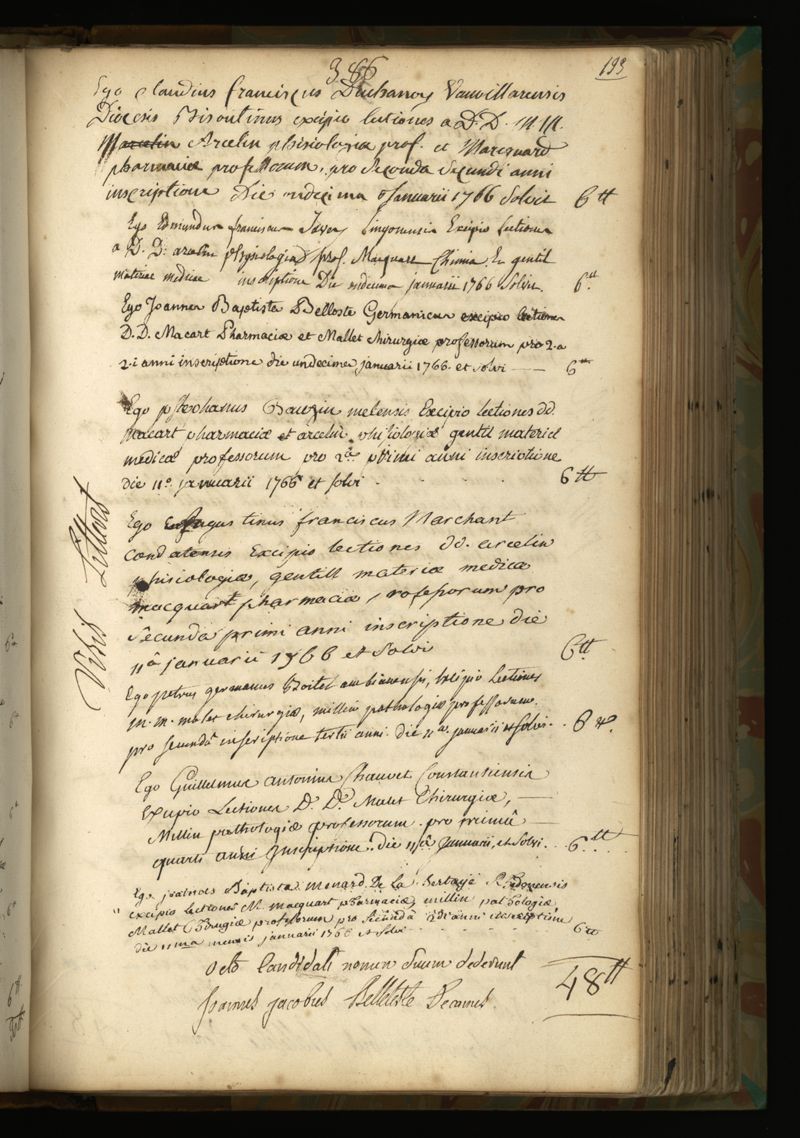 386
193
Ego Claudius franciscus Duchanoy Vauvillarensis
Diocesis Bisontinus excipio lectiones a D.D. M M.
Macelin Arcelin phisiologiæ prof. et Macquard
pharmaciæ professorum, pro secunda secundi anni
inscriptione Die undecima Januarii 1766 Solvit 6 tt
Ego Edmundus franciscus lingonensis Excipio Lectiones
a D. D. arcelin physiologiæ prof. Macquart Chimiæ Et gentil
materiae medicae inscriptione Die undecima januarii 1766 Solvi. 6 tt
Ego Joannes Baptista Belloste Germanicus excipio lectiones
D.D. Macart Pharmaciæ et Mallet Chirurgiæ professorum pro 2.a
2.i anni inscriptione die undecima januarii 1766. et solvi 6 tt
Ego stephanus Bauzin metensis Excipio lectiones dd.
Macart pharmaciæ et arcelin phisiologiæ gentil materiæ
medicæ professorum pro 2a primi anni inscriptione
die 11a januarii 1766 et solvi 6 tt
Ego augustinus franciscus Marchant
condatensis Excipio lectiones dd. arcelin
phisiologiæ, gentill materiæ medicæ
macquart pharmaciæ professorum pro
secunda primi anni inscriptione die
11a januarii 1766 et solvi 6 tt
Ego petrus germanus Boitel ambianensis, Excipio Lectiones
m. m. malet chirurgiæ, millin pathologiæ professorum.
pro secunda inscriptione tertii anni. die 11a januarii et solvi. 6 tt.
Ego Guillelmus antonius Chauvet Constantiensis
Excipio Lectiones D. D. Malet Chirurgiæ,
Millin pathologiæ professorum. pro
quarti anni Inscriptione. die 11a Januarii, et Solvi. 6 tt
Ego joannes Baptista menard De la
excipio Lectiones M. macquart pharmaciæ, millin pathologiæ
Mallet Chirurgiæ professorum pro secunda anni inscriptione
die 11ma mensis januarii 1766 et solvi 6 tt
Octo Candidati nomen suum dederunt 48 tt
Joannes jacobus Belleteste Decanus.